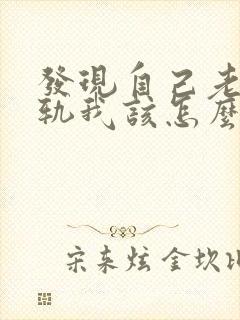 發現自己老
軌我該怎麼
宋來炫金坎比